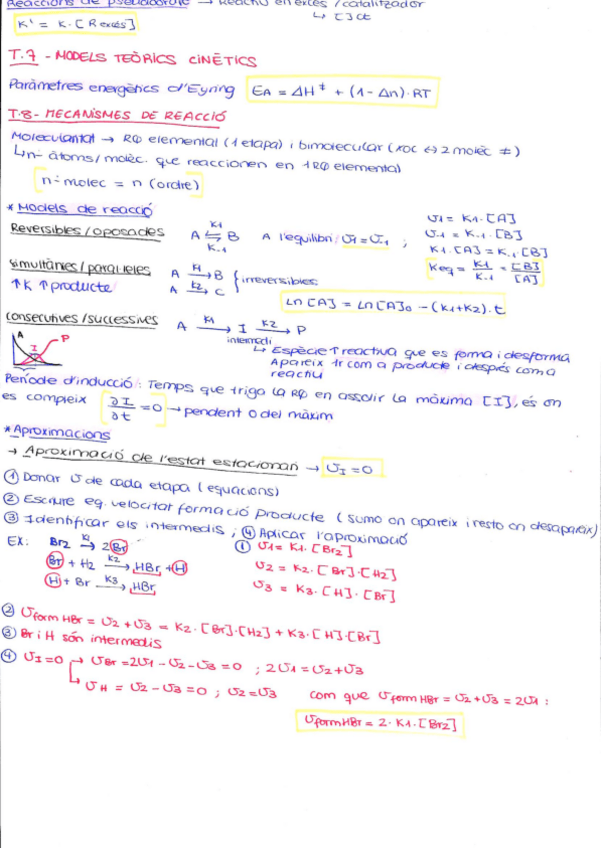 Reaccions de pseudoordre → Reactiu en excés / catalitzador
↳ [ ] ct
K' = K·[Rexcés]
T.7 - MODELS TEÒRICS CINÈTICS
Paràmetres energètics d'Eyring   EA = ΔH‡ + (1-Δn)·RT
T.8 - MECANISMES DE REACCIÓ
Molecularitat → RQ elemental (1 etapa) i bimolecular (xoc ↔ 2 molèc ≠)
↳ nº àtoms/molèc. que reaccionen en 1 RQ elemental
nº molec = n (ordre)
* Models de reacció
Reversibles/oposades   A ⇌ B   K1   K-1   A l'equilibri, v1 = v-1 ;
v1 = K1·[A]
v-1 = K-1·[B]
K1·[A] = K-1·[B]
Keq = K1/K-1 = [B]/[A]
Simultànies/paral·leles   A →K1 B
↑K ↑producte   A →K2 C   } irreversibles:
Ln[A] = Ln[A]0 - (K1+K2)·t
Consecutives/successives   A →K1 I →K2 P
A I P
intermedi
↳ Espècie ↑reactiva que es forma i desforma
Apareix 1r com a producte i després com a
reactiu
Període d'inducció: Temps que triga la RQ en assolir la màxima [I], és on
es compleix   ∂I/∂t = 0 → pendent 0 del màxim
* Aproximacions
→ Aproximació de l'estat estacionari → vI = 0
① Donar v de cada etapa (equacions)
② Escriure eq. velocitat formació producte (sumo on apareix i resto on desapareix)
③ Identificar els intermedis ; ④ Aplicar l'aproximació
EX: Br2 →K1 2Br   ① v1 = K1·[Br2]
Br + H2 →K2 HBr + H   v2 = K2·[Br]·[H2]
H + Br →K3 HBr   v3 = K3·[H]·[Br]
② vform HBr = v2 + v3 = K2·[Br]·[H2] + K3·[H]·[Br]
③ Br i H són intermedis
④ vI = 0 → vBr = 2v1 - v2 - v3 = 0 ; 2v1 = v2 + v3
↳ vH = v2 - v3 = 0 ; v2 = v3   com que vform HBr = v2 + v3 = 2v1 :
vform HBr = 2·K1·[Br2]